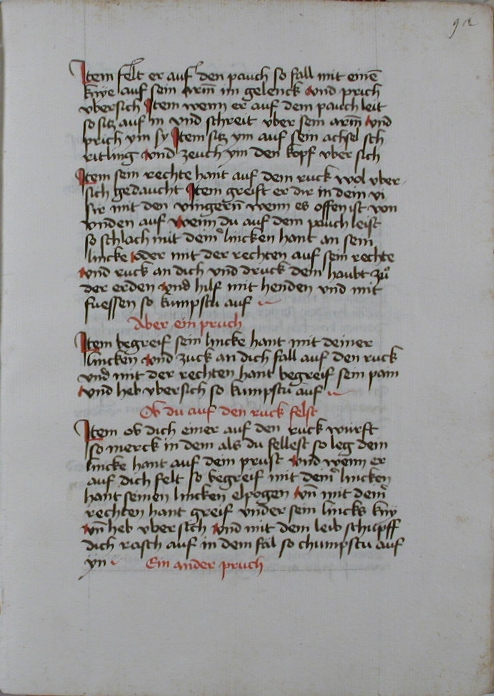 92
Item felt er auf den pauch so fall mit einē
knye auf sein arm im gelenck vnd prich
vbersich Item wenn er auf dem pauch leit
so sitz auf in vnd schreit vber sein arm vnd
prich ym sy Item sitz ym auf sein achsel sch
ritling vnd zeuch ym den kopf vber sich
Item sein rechte hant auf dem ruck wol vber
sich gedaucht Item greift er dir in dein vi
sir mit den vingern wenn es offen ist von
vnden auf wenn du auf dem pauch leist
so schlach mit dem lincken hant an sein
lincke oder mit der rechten auf sein rechte
vnd ruck an dich vnd druck dem haubt zu
der erden vnd hilf mit henden vnd mit
fuessen so kumpstu auf
Aber ein pruch
Item begreif sein lincke hant mit deiner
lincken vnd zuck an dich fall auf den ruck
vnd mit der rechten hant begreif sein pain
vnd heb vbersich so kumpstu auf
Ob du auf den ruck felst
Item ob dich einer auf den ruck wurft
so merck in dem als du fellest so leg dein
lincke hant auf dem prust vnd wenn er
auf dich felt so begreif mit dem lincken
hant seinen lincken elpogen vn̄ mit dem
rechten hant greif vnder sein lincks kny
vn̄ heb vbersich vnd mit dem leib schupff
dich rasch auf in dem fal so chumpstu auf
yn Ein ander pruch